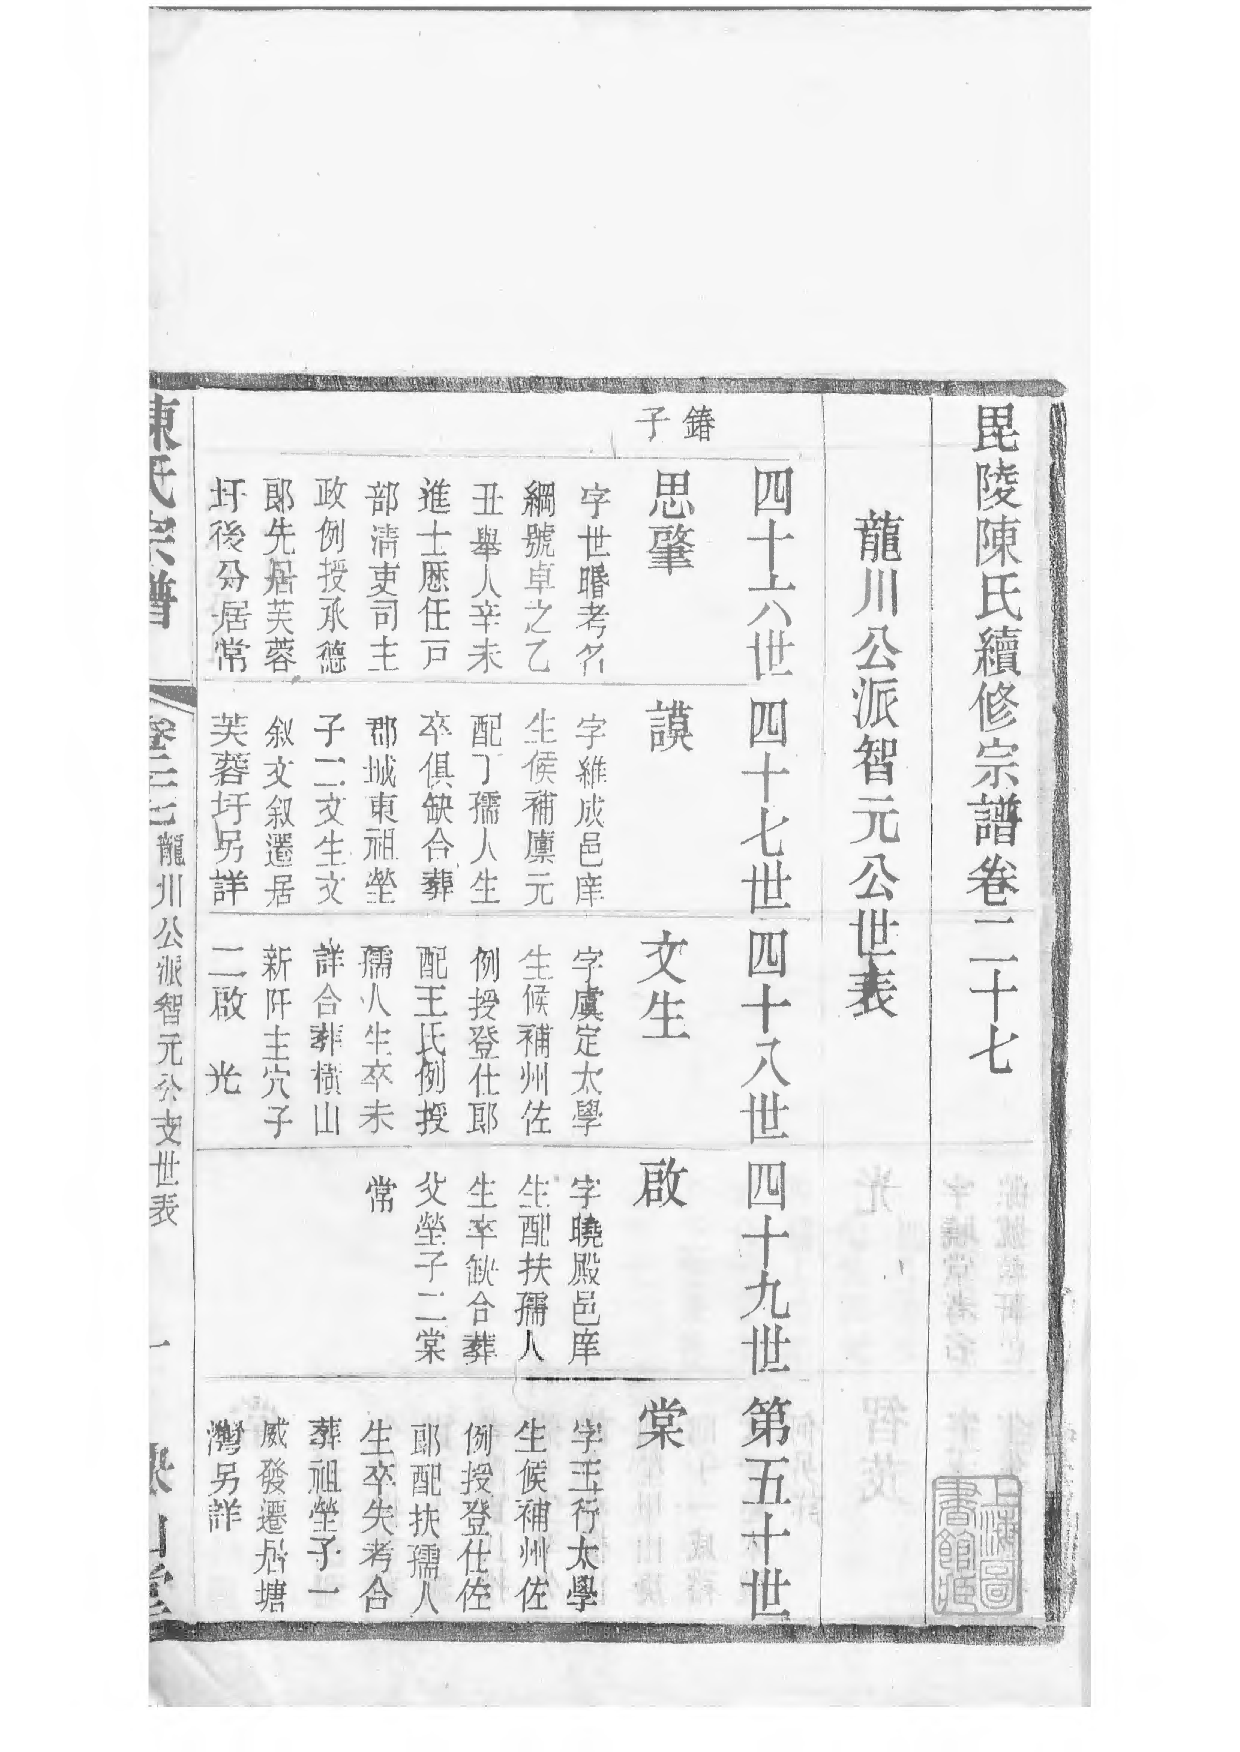 毘陵陳氏續修宗譜卷二十七
龍川公派智元公世表
四十六世
四十七世
四十八世
四十九世
第五十世
鏞
子
思肇
字世㬌考名
綱號卓之乙
丑舉人辛未
進士歷任戸
部清吏司主
政例授承德
郎先居芙蓉
圩後分居常
謨
字維成邑庠
生候補廩元
配丁孺人生
卒俱缺合葬
郡城東祖塋
子二文生文
叙文叙遷居
芙蓉圩另詳
文生
字虞定太學
生候補州佐
例授登仕郎
配王氏例授
孺人生卒未
詳合葬横山
新阡主穴子
二啟 光
啟
字曉殿邑庠
生配扶孺人
生卒缺合葬
父塋子二棠
常
棠
字玉行太學
生候補州佐
例授登仕佐
郎配扶孺人
生卒失考合
葬祖塋子一
威發遷居塘
灣另詳
陳氏宗譜
卷二七
龍川公派智元公支世表
一
上海圖
書館藏